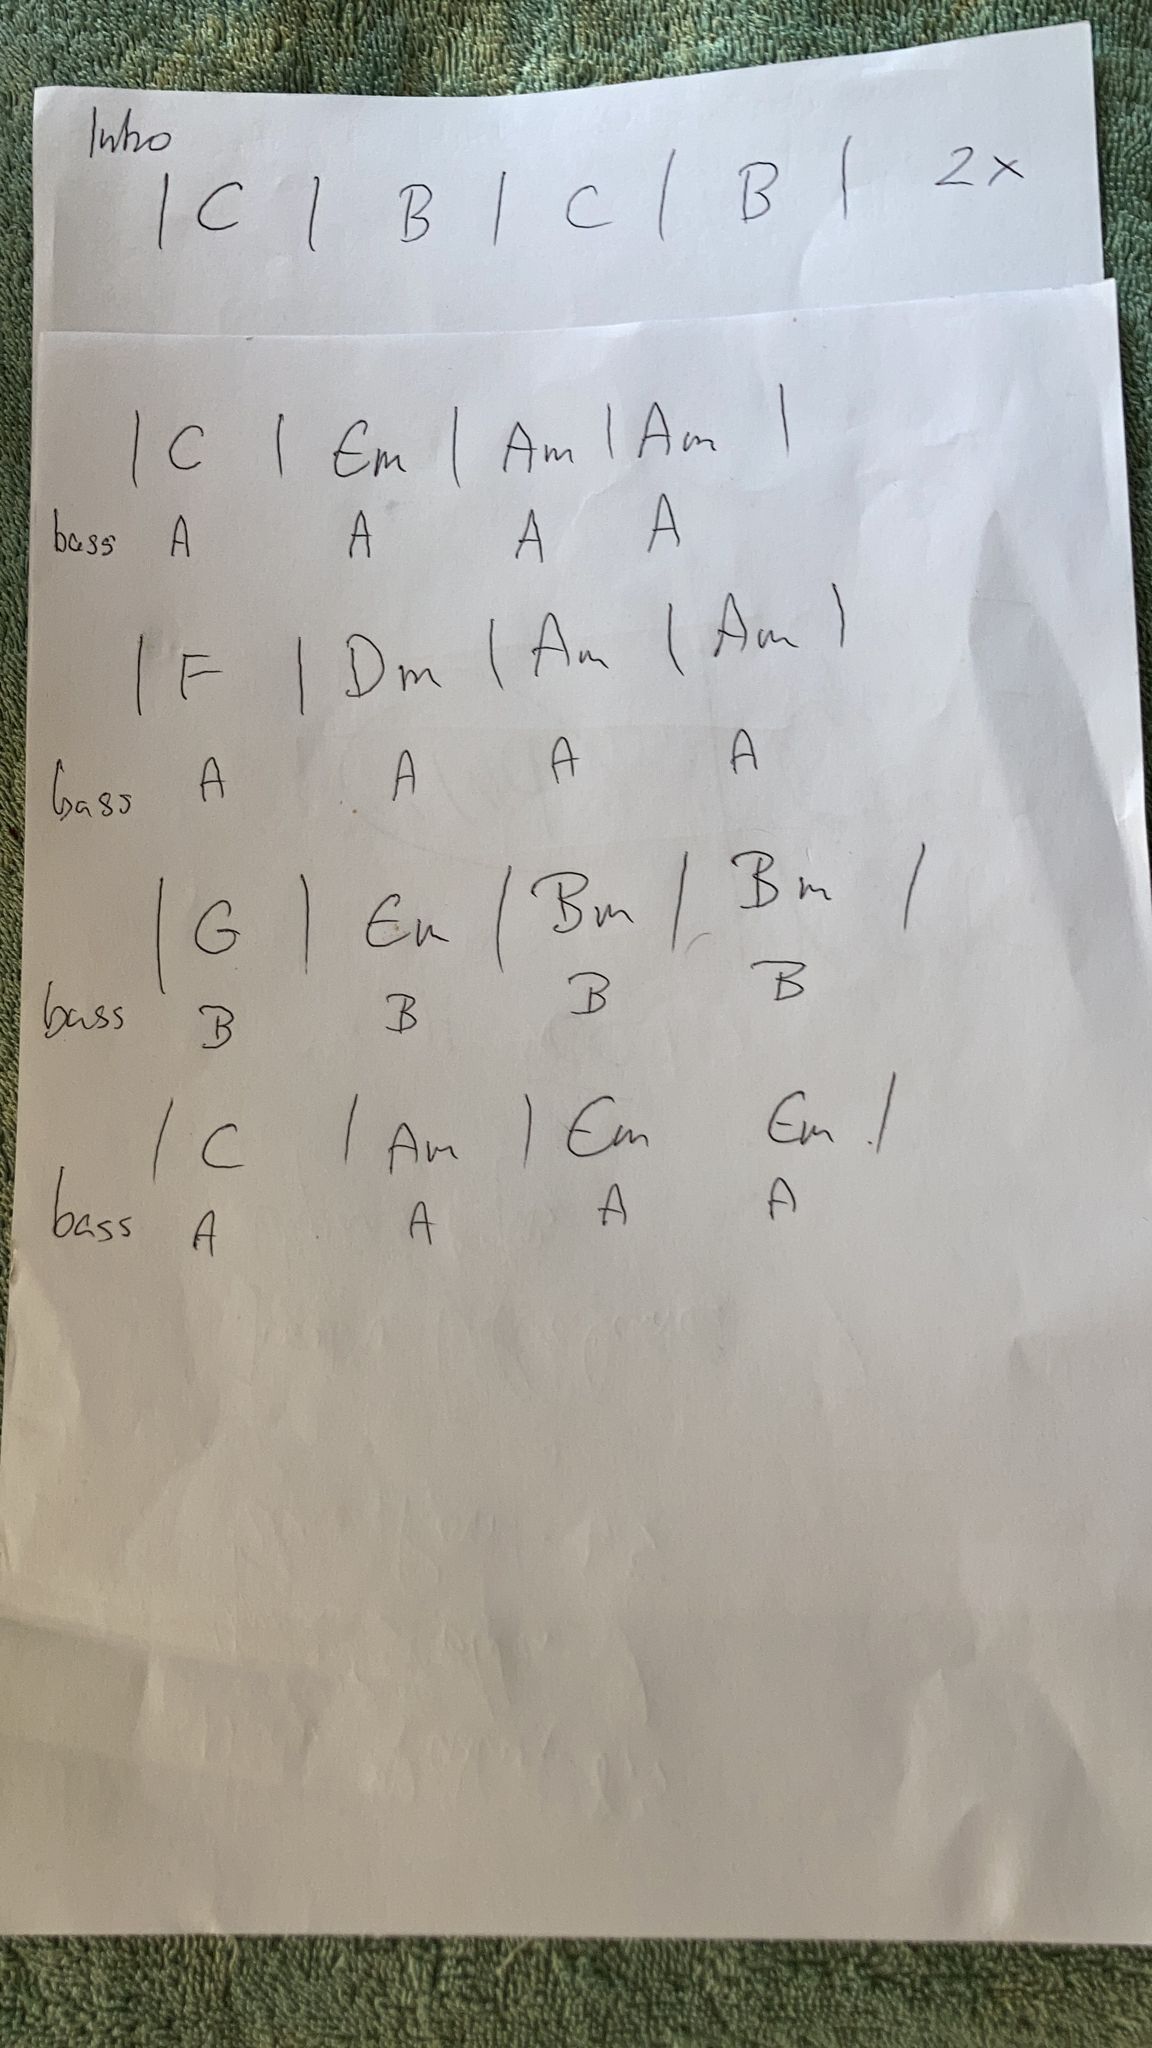 Intro
| C | B | C | B | 2x
| C | Em | Am | Am |
bass A A A A
| F | Dm | Am | Am |
bass A A A A
| G | Em | Bm | Bm |
bass B B B B
| C | Am | Em Em |
bass A A A A